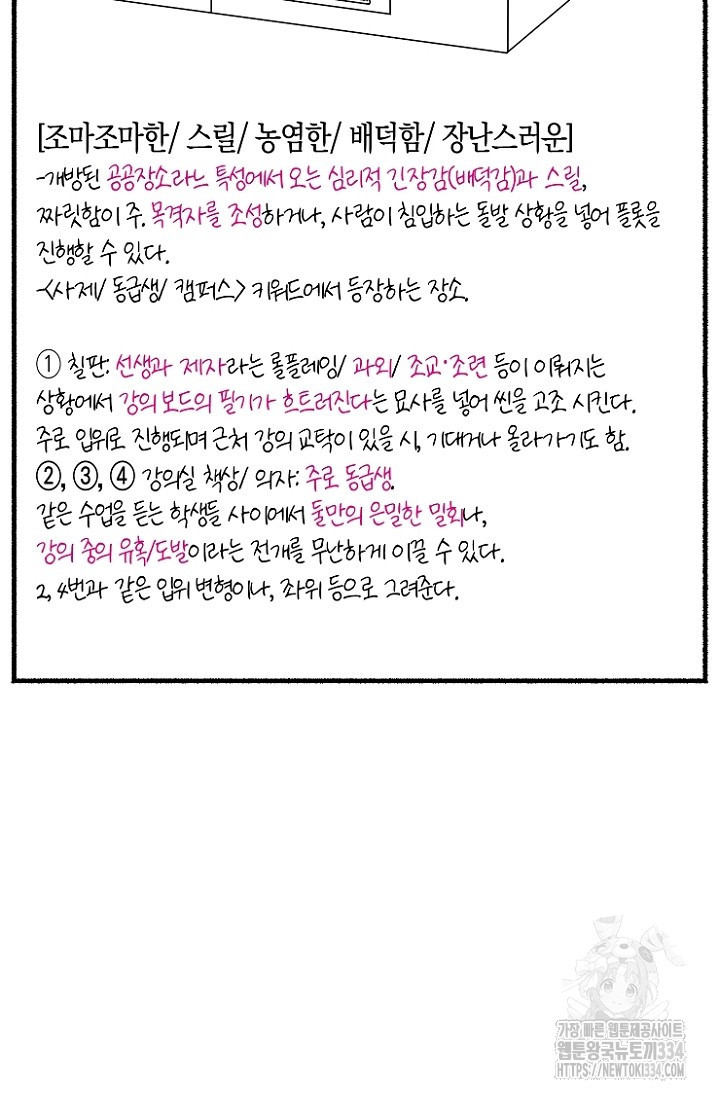 [조마조마한/ 스릴/ 농염한/ 배덕함/ 장난스러운]
-개방된 공공장소라느 특성에서 오는 심리적 긴장감(배덕감)과 스릴,
짜릿함이 주. 목격자를 조성하거나, 사람이 침입하는 돌발 상황을 넣어 플롯을
진행할 수 있다.
-<사제/ 동급생/ 캠퍼스> 키워드에서 등장하는 장소.
① 칠판: 선생과 제자라는 롤플레잉/ 과외/ 조교·조련 등이 이뤄지는
상황에서 강의 보드의 필기가 흐트러진다는 묘사를 넣어 씬을 고조 시킨다.
주로 입위로 진행되며 근처 강의 교탁이 있을 시, 기대거나 올라가기도 함.
②, ③, ④ 강의실 책상/ 의자: 주로 동급생.
같은 수업을 듣는 학생들 사이에서 둘만의 은밀한 밀회나,
강의 중의 유혹/도발이라는 전개를 무난하게 이끌 수 있다.
2, 4번과 같은 입위 변형이나, 좌위 등으로 그려준다.
가장 빠른 웹툰제공사이트
웹툰왕국뉴토끼334
HTTPS://NEWTOKI334.COM